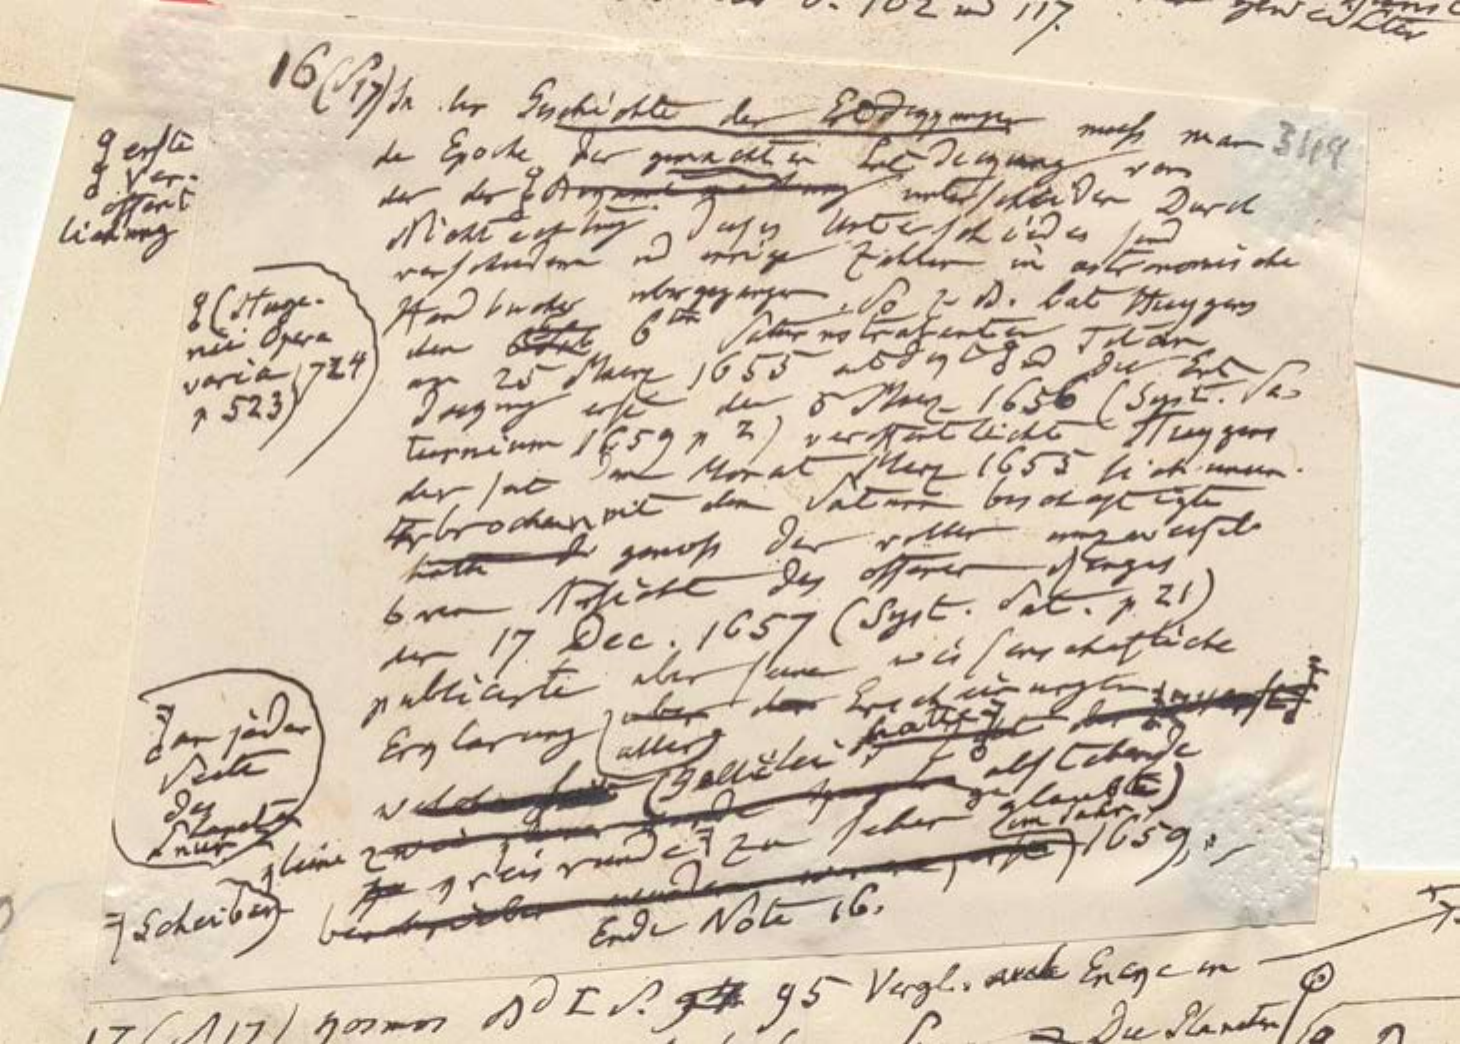 S. 102 und 117.
16 (S 17) In der Geschichte der Entdeckungen muss man
3149
die Epoche der gemachten Entdeckung von
der der unterscheiden Durch
Nichtachtung dieses Unterschiedes sind
verschiedene und irrige Zahlen in astronomische
Handbucher ubergegangen. So z. B. hat Huygens
den 6ten Saturnstrabanten Titan
am 25 Marz 1655 entdeckt und die Ent
deckung erst den 5 Marz 1656 (Syst. Sa-
turnium 1659 p 2) veroffentlicht Huygens
der seit dem Monat Marz 1655 sich unun-
terbrochen mit dem Saturn beschaftigte
genoss der vollen unzweifel
baren Ansicht des offenen Ringes
den 17 Dec. 1657 (Syst. Sat. p. 21)
publicirte aber seine wissenschaftliche
Erklarung aller Erscheinungen
(Galilei hatte
abstehende
kleine kreisrunde zu sehen geglaubt)
im Jahr 1659.
Ende Note 16.
erste
Ver-
offent
lichung
(Huge-
nii Opera
varia, 724
p 523)
an jeder
Seite
des
Planeten
nur
Scheiben
17 (S 17) Kosmos Bd I S. 95 Vergl. auch Encke in
Die Planeten